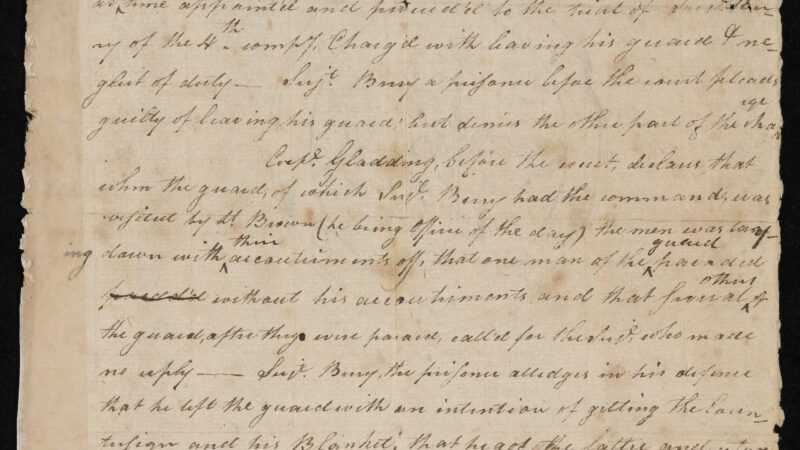 time appoint'd and proceed'd to the trial of
ry of the 4th comp'y. Charg'd with leaving his guard & ne-
glect of duty — Serj't. Burry a prisoner before the court pleads
guilty of leaving his guard, but denies the other part of the cha
rge
Corp'l. Gladding, before the court, declares that
when the guard, of which Serj't. Burry had the command, was
visited by Lt. Brown (he being officer of the day) the men was lay-
ing down with their accoutriments off, that one man of the guard paraded
paradd'd without his accoutriments and that several others of
the guard, after they were parad, call'd for the Serj't. who made
no reply — Serj't. Burry, the prisoner alledges in his defence
that he left the guard with an intention of getting the Coun-
tersign and his Blanket, that he got the latter and